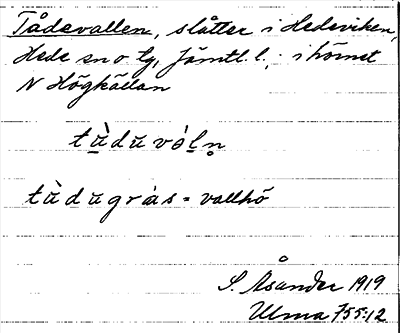 Tådavallen, slåtter i Hedeviken,
Hede sn o tg, Jämtl. l.; i hörnet
N Högkällan
tù̱dūvóḷn̥
tùdūgràs = vallhö
S. Åsander 1919
Ulma 755:12